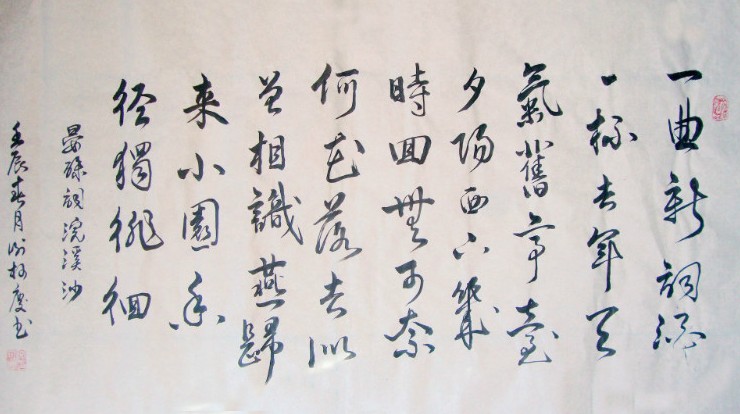 一曲新詞酒
一杯去年天
氣舊亭臺
夕陽西下幾
時回無可奈
何花落去似
曾相識燕歸
来小園香
徑獨徘徊
晏殊詞浣溪沙
壬辰春月书